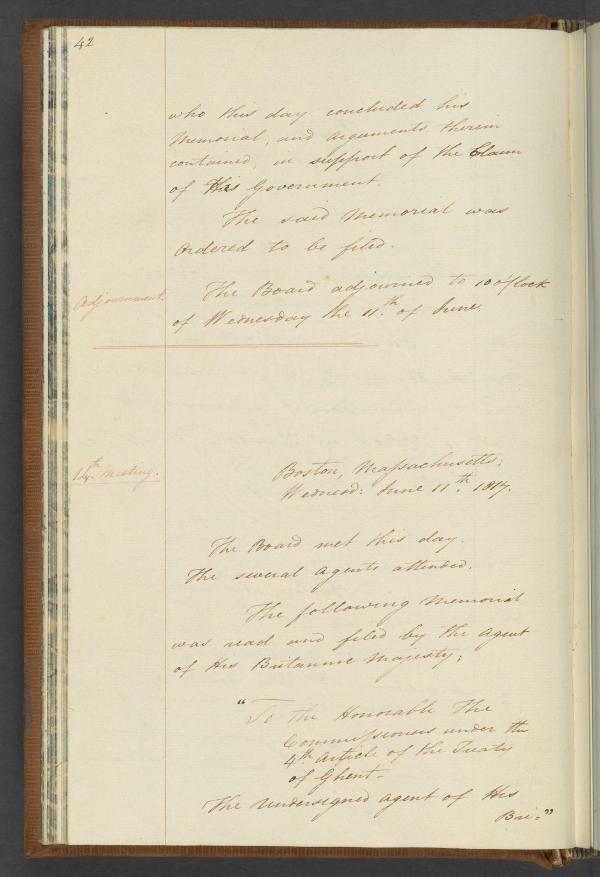 42
who this day concluded his
Memorial, and arguments therein
contained, in support of the Claim
of His Government.
The said Memorial was
Ordered to be filed.
Adjournment.
The Board adjourned to 10 o'Clock
of Wednesday the 11.th of June.
14.th Meeting.
Boston, Massachusetts;
Wednesd: June 11.th 1817.
The Board met this day.
The several Agents attended.
The following Memorial
was read and filed by the Agent
of His Britannic Majesty;
"To the Honorable The
Commissioners under the
4.th Article of the Treaty
of Ghent-
The Undersigned Agent of His
Bri="